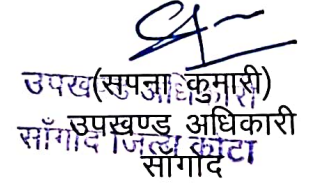 (सपना कुमारी)
उपखण्ड अधिकारी
उपखण्ड अधिकारी
सांगोद
साँगोद जिला कोटा